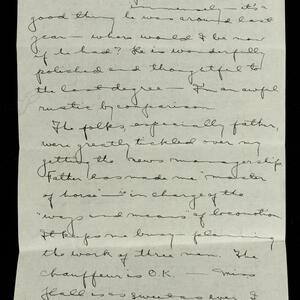 immensely — it's a
good thing he was around last
year — where would I be now
if he had? He is wonderfully
polished and thoughtful to
the last degree — I'm an awful
rustic by comparison
The folks, especially father,
were greatly tickled over my
getting the news managership
Father has made me "master
of horse" — in charge of the
"ways and means" of locomotion
It keeps me busy — planning
the work of three men. The
chauffeur is O.K. — Miss
Hall is as sweet as ever. I